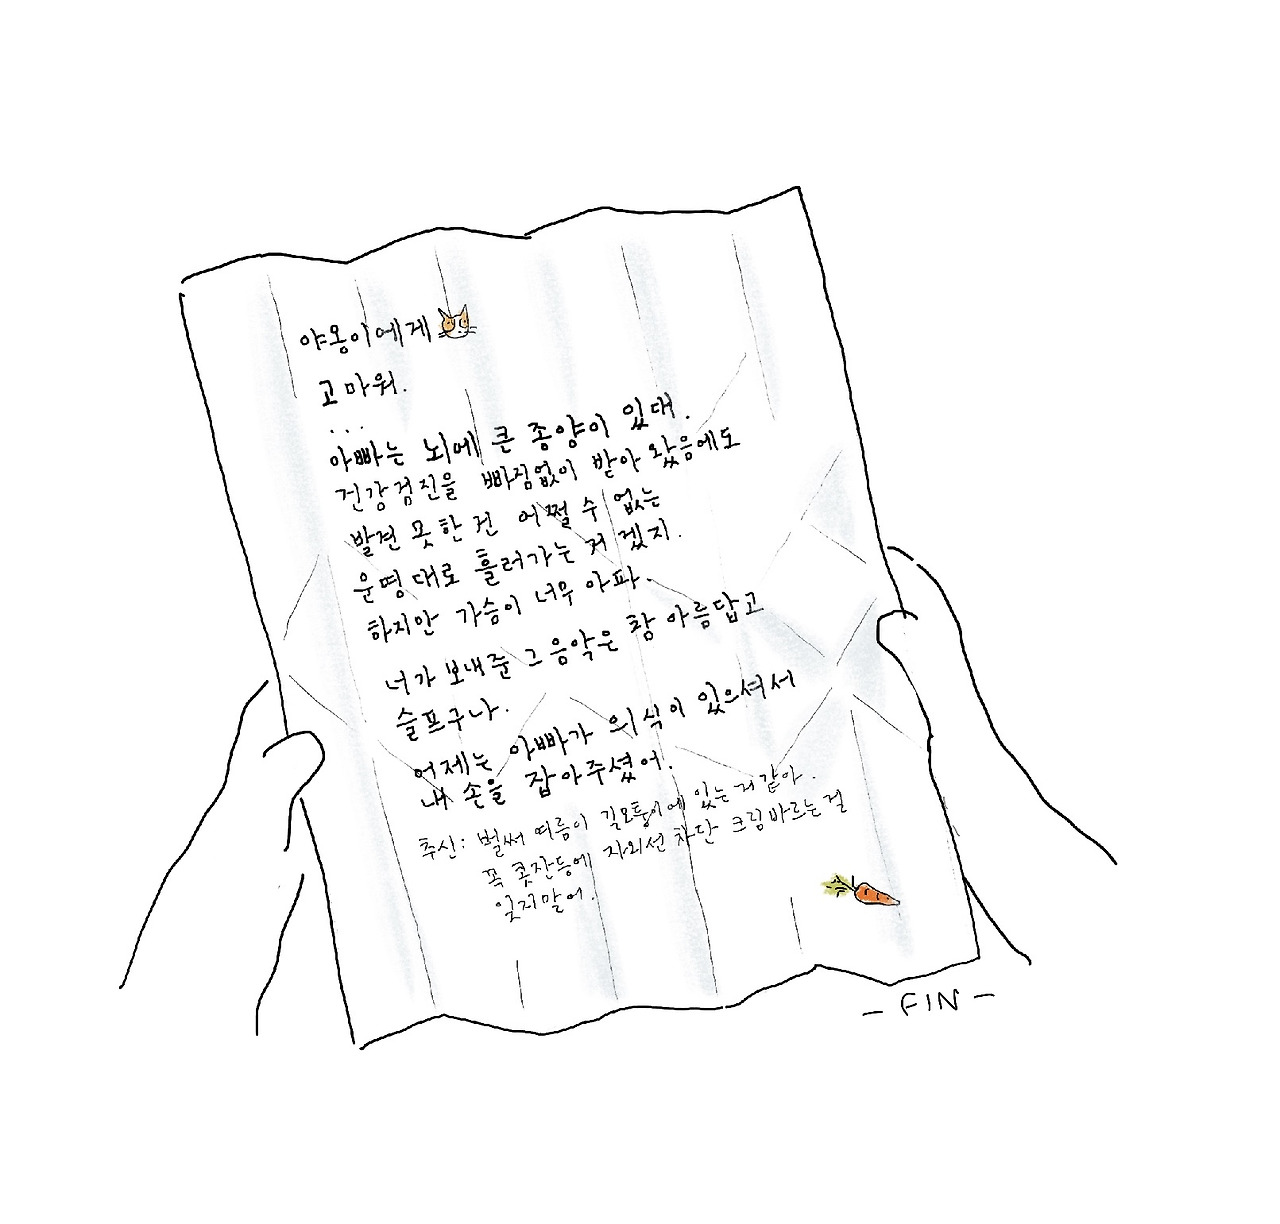 야옹이에게
고마워.
...
아빠는 뇌에 큰 종양이 있대.
건강검진을 빠짐없이 받아 왔음에도
발견 못한 건 어쩔 수 없는
운명대로 흘러가는 거 겠지.
하지만 가슴이 너무 아파.
너가 보내준 그 음악은 참 아름답고
슬프구나.
어제는 아빠가 의식이 있으셔서
내 손을 잡아주셨어.
추신: 벌써 여름이 길모퉁이에 있는거 같아.
꼭 콧잔등에 자외선 차단 크림바르는걸
잊지말어.
- FIN -